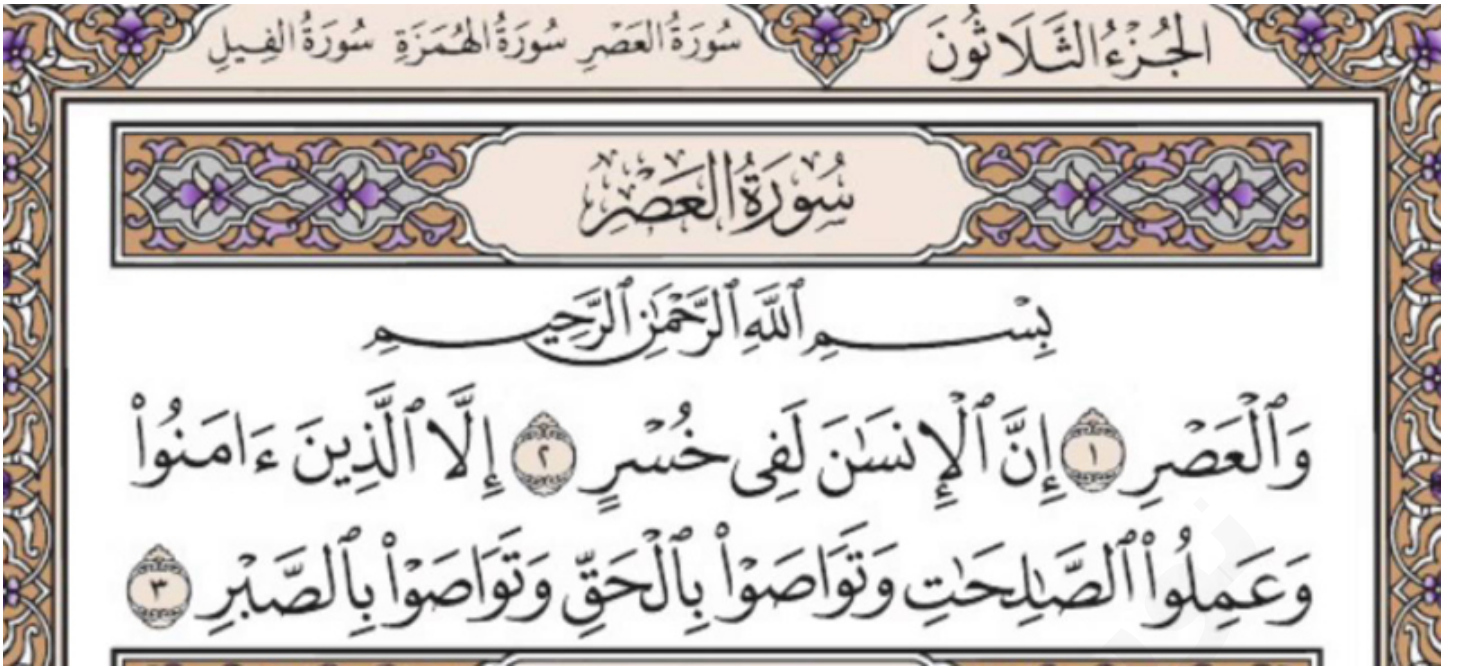 الجُزْءُ الثَّلَاثُونَ
سُورَةُ العَصْرِ سُورَةُ الهُمَزَةِ سُورَةُ الفِيلِ
سُورَةُ العَصْرِ
بِسْمِ ٱللَّهِ ٱلرَّحْمَٰنِ ٱلرَّحِيمِ
وَٱلْعَصْرِ ١ إِنَّ ٱلْإِنسَٰنَ لَفِى خُسْرٍ ٢ إِلَّا ٱلَّذِينَ ءَامَنُوا۟
وَعَمِلُوا۟ ٱلصَّٰلِحَٰتِ وَتَوَاصَوْا۟ بِٱلْحَقِّ وَتَوَاصَوْا۟ بِٱلصَّبْرِ ٣